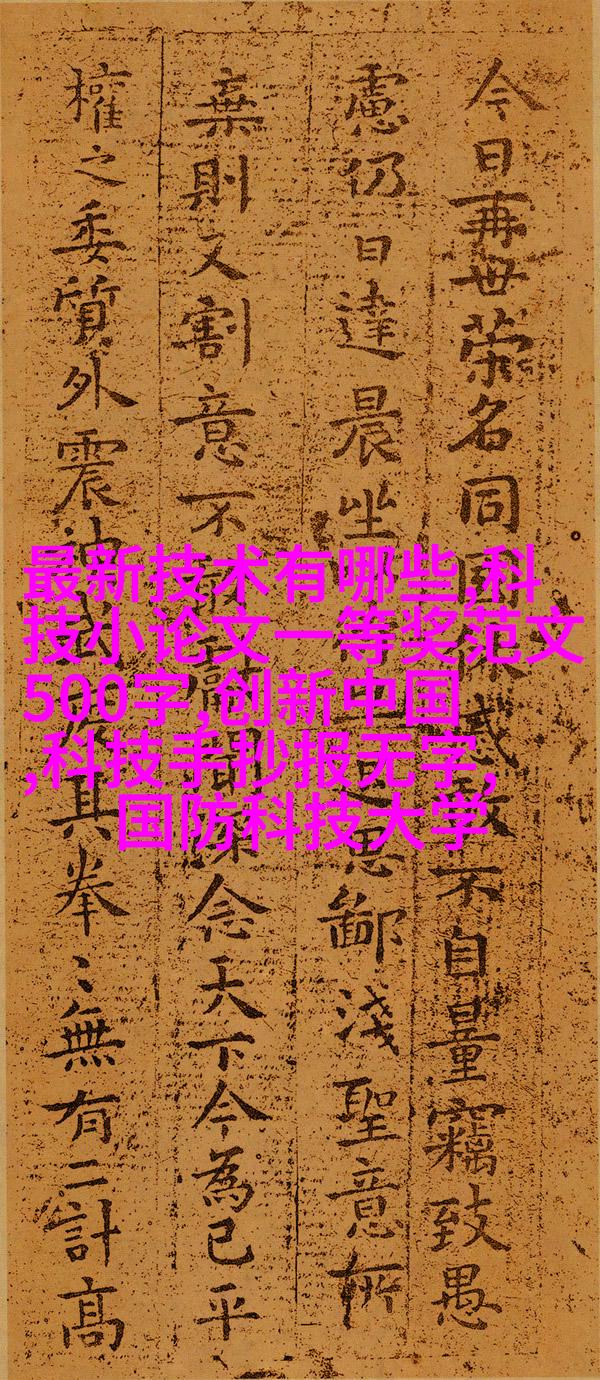 今日再世荣名同國休慼敢不自量竊致愚
慮仍日達晨坐思鄙淺聖意所
棄則又割意不敢獻聞深念天下今為已平
權之委質外震神武度其拳〻無有二計高
最新技术有哪些,科
技小论文一等奖范文
500字,创新中国
,科技手抄报无字,
国防科技大学